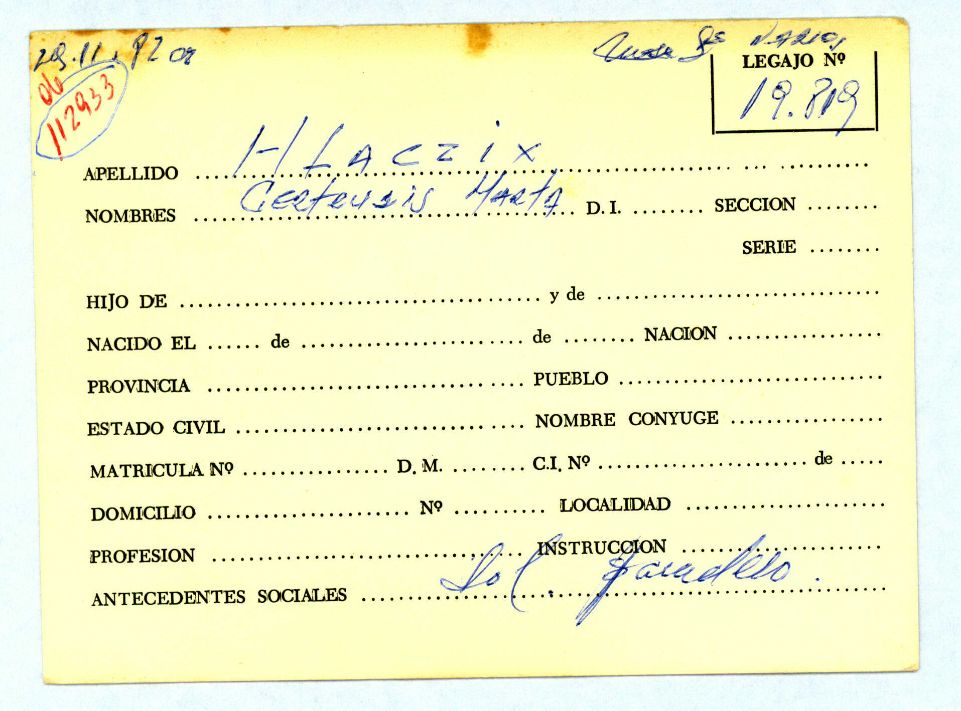 29.11.82
VARIOS
LEGAJO Nº
06
112933
19.819
APELLIDO HLACZIX
NOMBRES Gertrudis Marta D.I. SECCION
SERIE
HIJO DE y de
NACIDO EL de de NACION
PROVINCIA PUEBLO
ESTADO CIVIL NOMBRE CONYUGE
MATRICULA Nº D.M. C.I. Nº de
DOMICILIO Nº LOCALIDAD
PROFESION INSTRUCCION
ANTECEDENTES SOCIALES Sol.